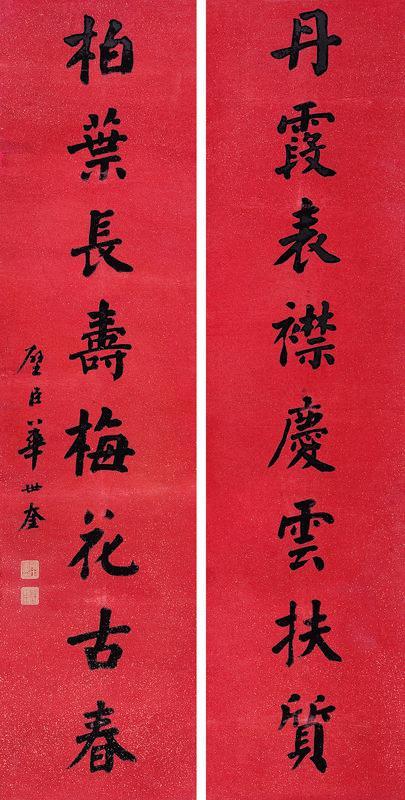 丹霞表襟慶雲扶質
柏葉長壽梅花古春
璧臣華世奎